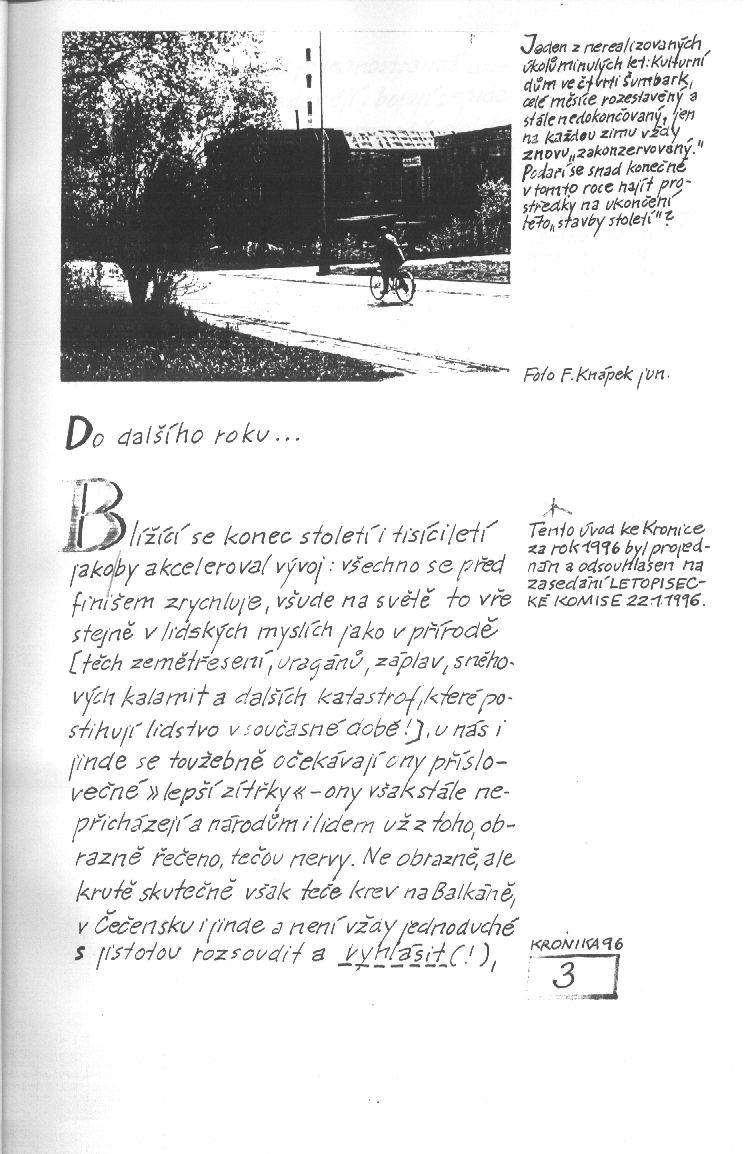 Jeden z nerealizovaných
úkolů minulých let: Kulturní
dům ve čtvrti Šumbark,
celé měsíce rozestavěný a
stále nedokončovaný, jen
na každou zimu vždy
znovu „zakonzervovaný."
Podaří se snad konečně
v tomto roce najít pro-
středky na ukončení
této „stavby století"?
Foto F. Knápek jun.
Do dalšího roku...
Blížící se konec století i tisíciletí
jakoby akceleroval vývoj: všechno se před
finišem zrychluje, všude na světě to vře
stejně v lidských myslích jako v přírodě
[těch zemětřesení, uragánů, záplav, sněho-
vých kalamit a dalších katastrof, které po-
stihují lidstvo v současné době!], u nás i
jinde se toužebně očekávají ony příslo-
večné »lepší zítřky« – ony však stále ne-
přicházejí a národům i lidem už z toho, ob-
razně řečeno, tečou nervy. Ne obrazně, ale
krutě skutečně však teče krev na Balkáně,
v Čečensku i jinde a není vždy jednoduché
s jistotou rozsoudit a vyhlásit (!),
Tento úvod ke Kronice
za rok 1996 byl projed-
nán a odsouhlasen na
zasedání LETOPISEC-
KÉ KOMISE 22.1.1996.
KRONIKA 96
3